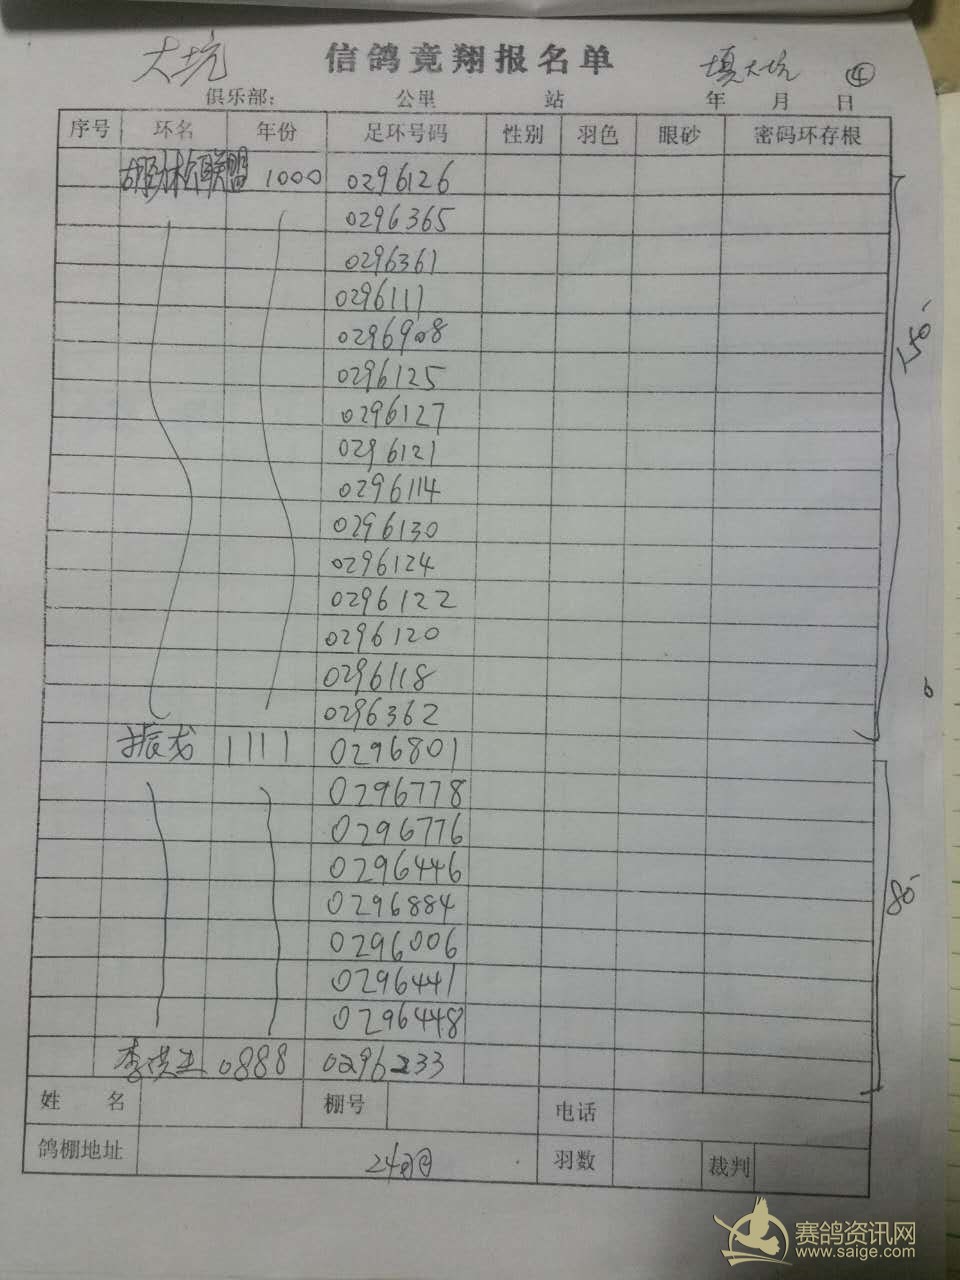 大坑 信鸽竞翔报名单 填大坑 ④
俱乐部： 公里 站 年 月 日
序号 环名 年份 足环号码 性别 羽色 眼砂 密码环存根
联盟 1000 0296126
0296365
0296361
0296111
0296908
0296125
0296127
0296121
0296114
0296130
0296124
0296122
0296120
0296118
0296362
150-
振龙 1111 0296801
0296778
0296776
0296446
0296884
0296006
0296441
0296448
80-
李洪 0888 0296233
姓 名 棚号 电话
鸽棚地址 24羽 羽数 裁判
赛鸽资讯网
www.saige.com